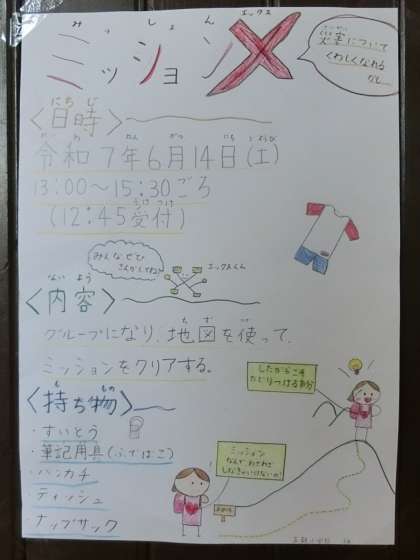 ミッションX
みっしょん
エックス
災害について
くわしくなれる
〈日時〉
にちじ
令和7年6月14日(土)
13:00〜15:30ごろ
(12:45受付)
みんなぜひ
さんかしてね!
エックスくん
〈内容〉
ないよう
グループになり、地図を使って、
ミッションをクリアする。
〈持ち物〉
もちもの
・すいとう
・筆記用具(ふでばこ)
・ハンカチ
・ティッシュ
・ナップサック
したからこそ
たどりつける自分
ミッション
なんで、わざわざ
しなきゃいけないの?